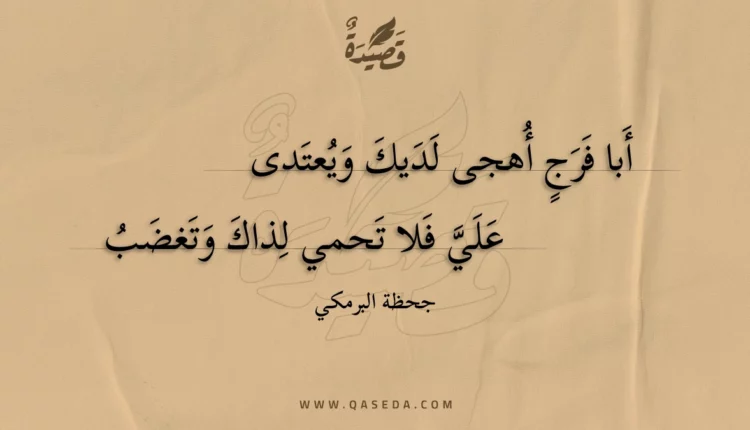 قَصِيدَةٌ
أَبا فَرَجٍ أُهجى لَدَيكَ وَيُعتَدى
عَلَيَّ فَلا تَحمي لِذاكَ وَتَغضَبُ
جحظة البرمكي
WWW.QASEDA.COM